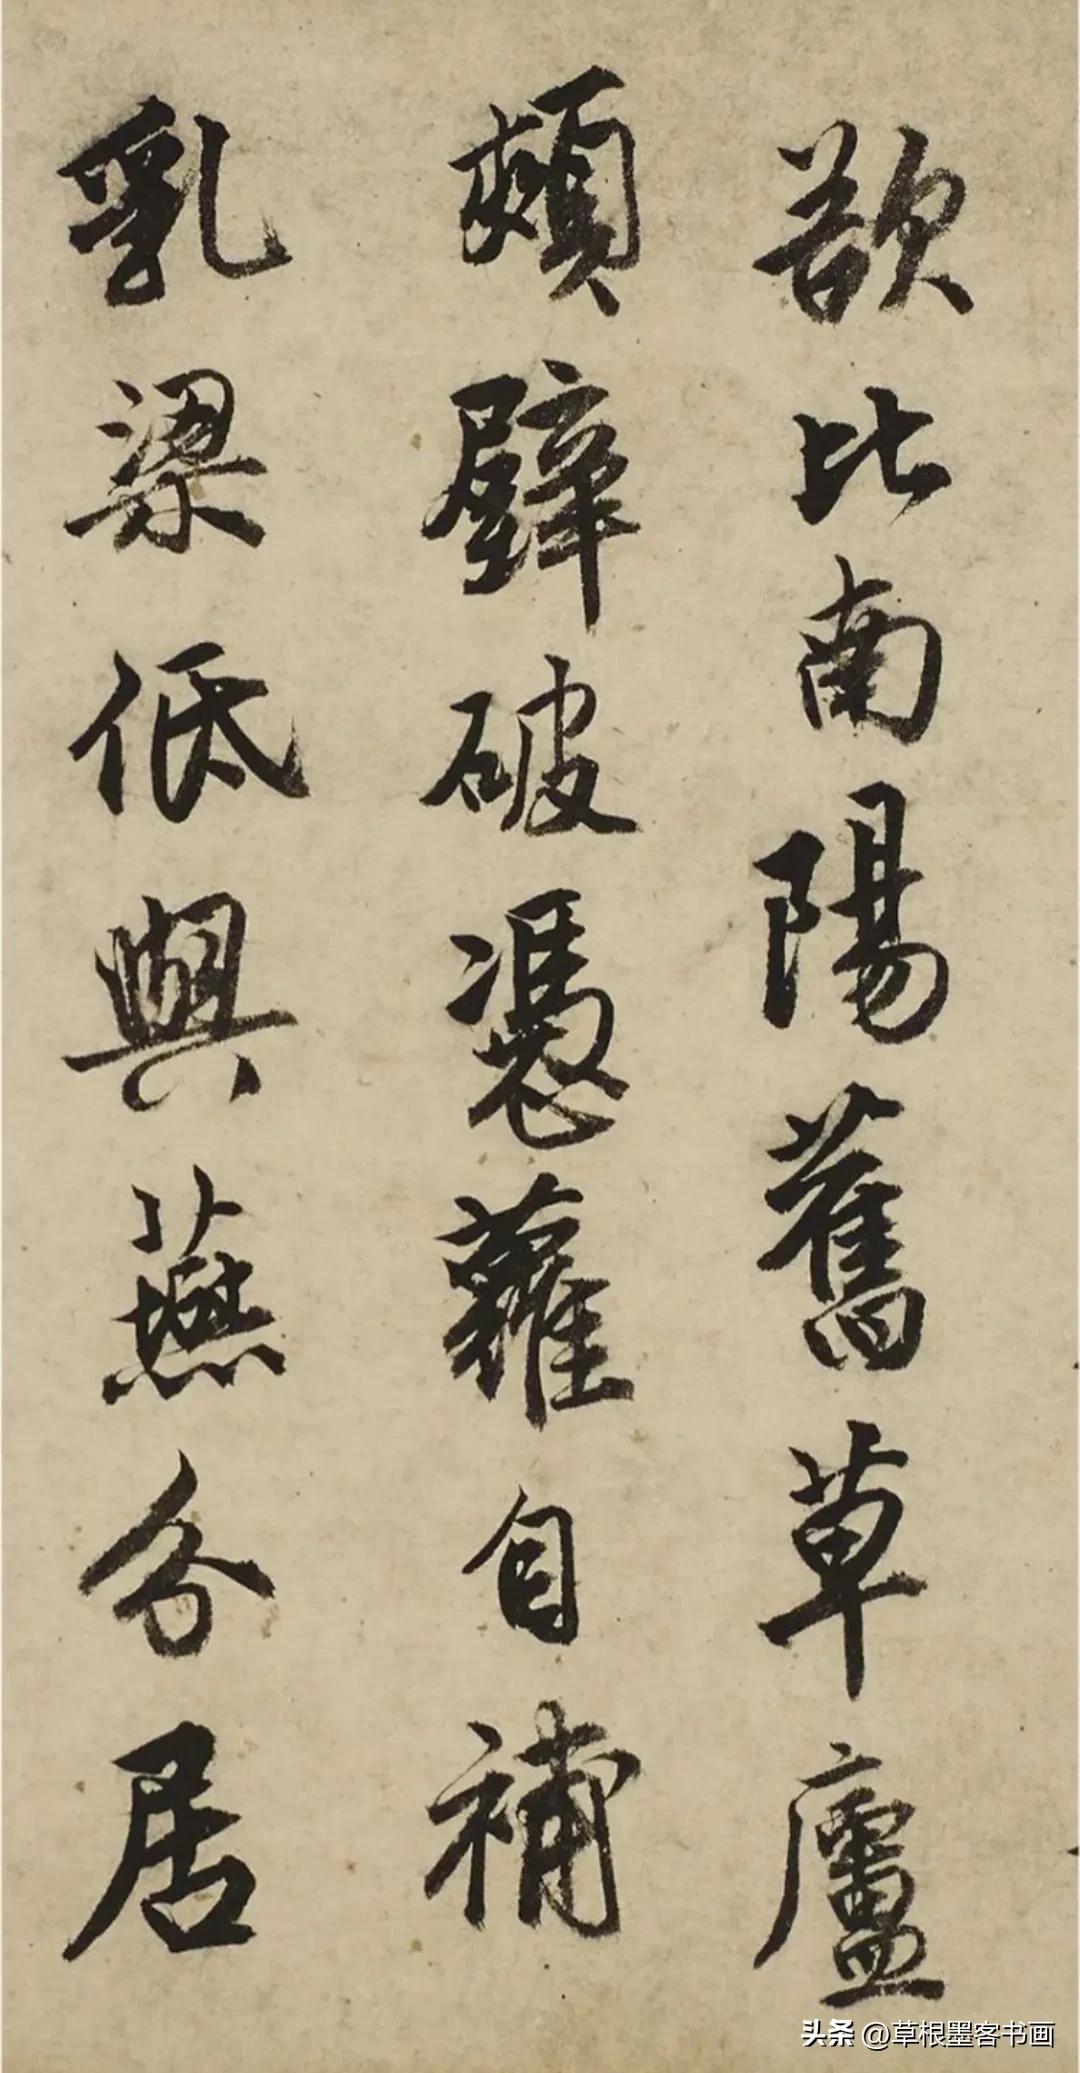 欲比南陽舊草廬
頹壁破憑蘿自補
乳梁低與燕分居
头条 @草根墨客书画